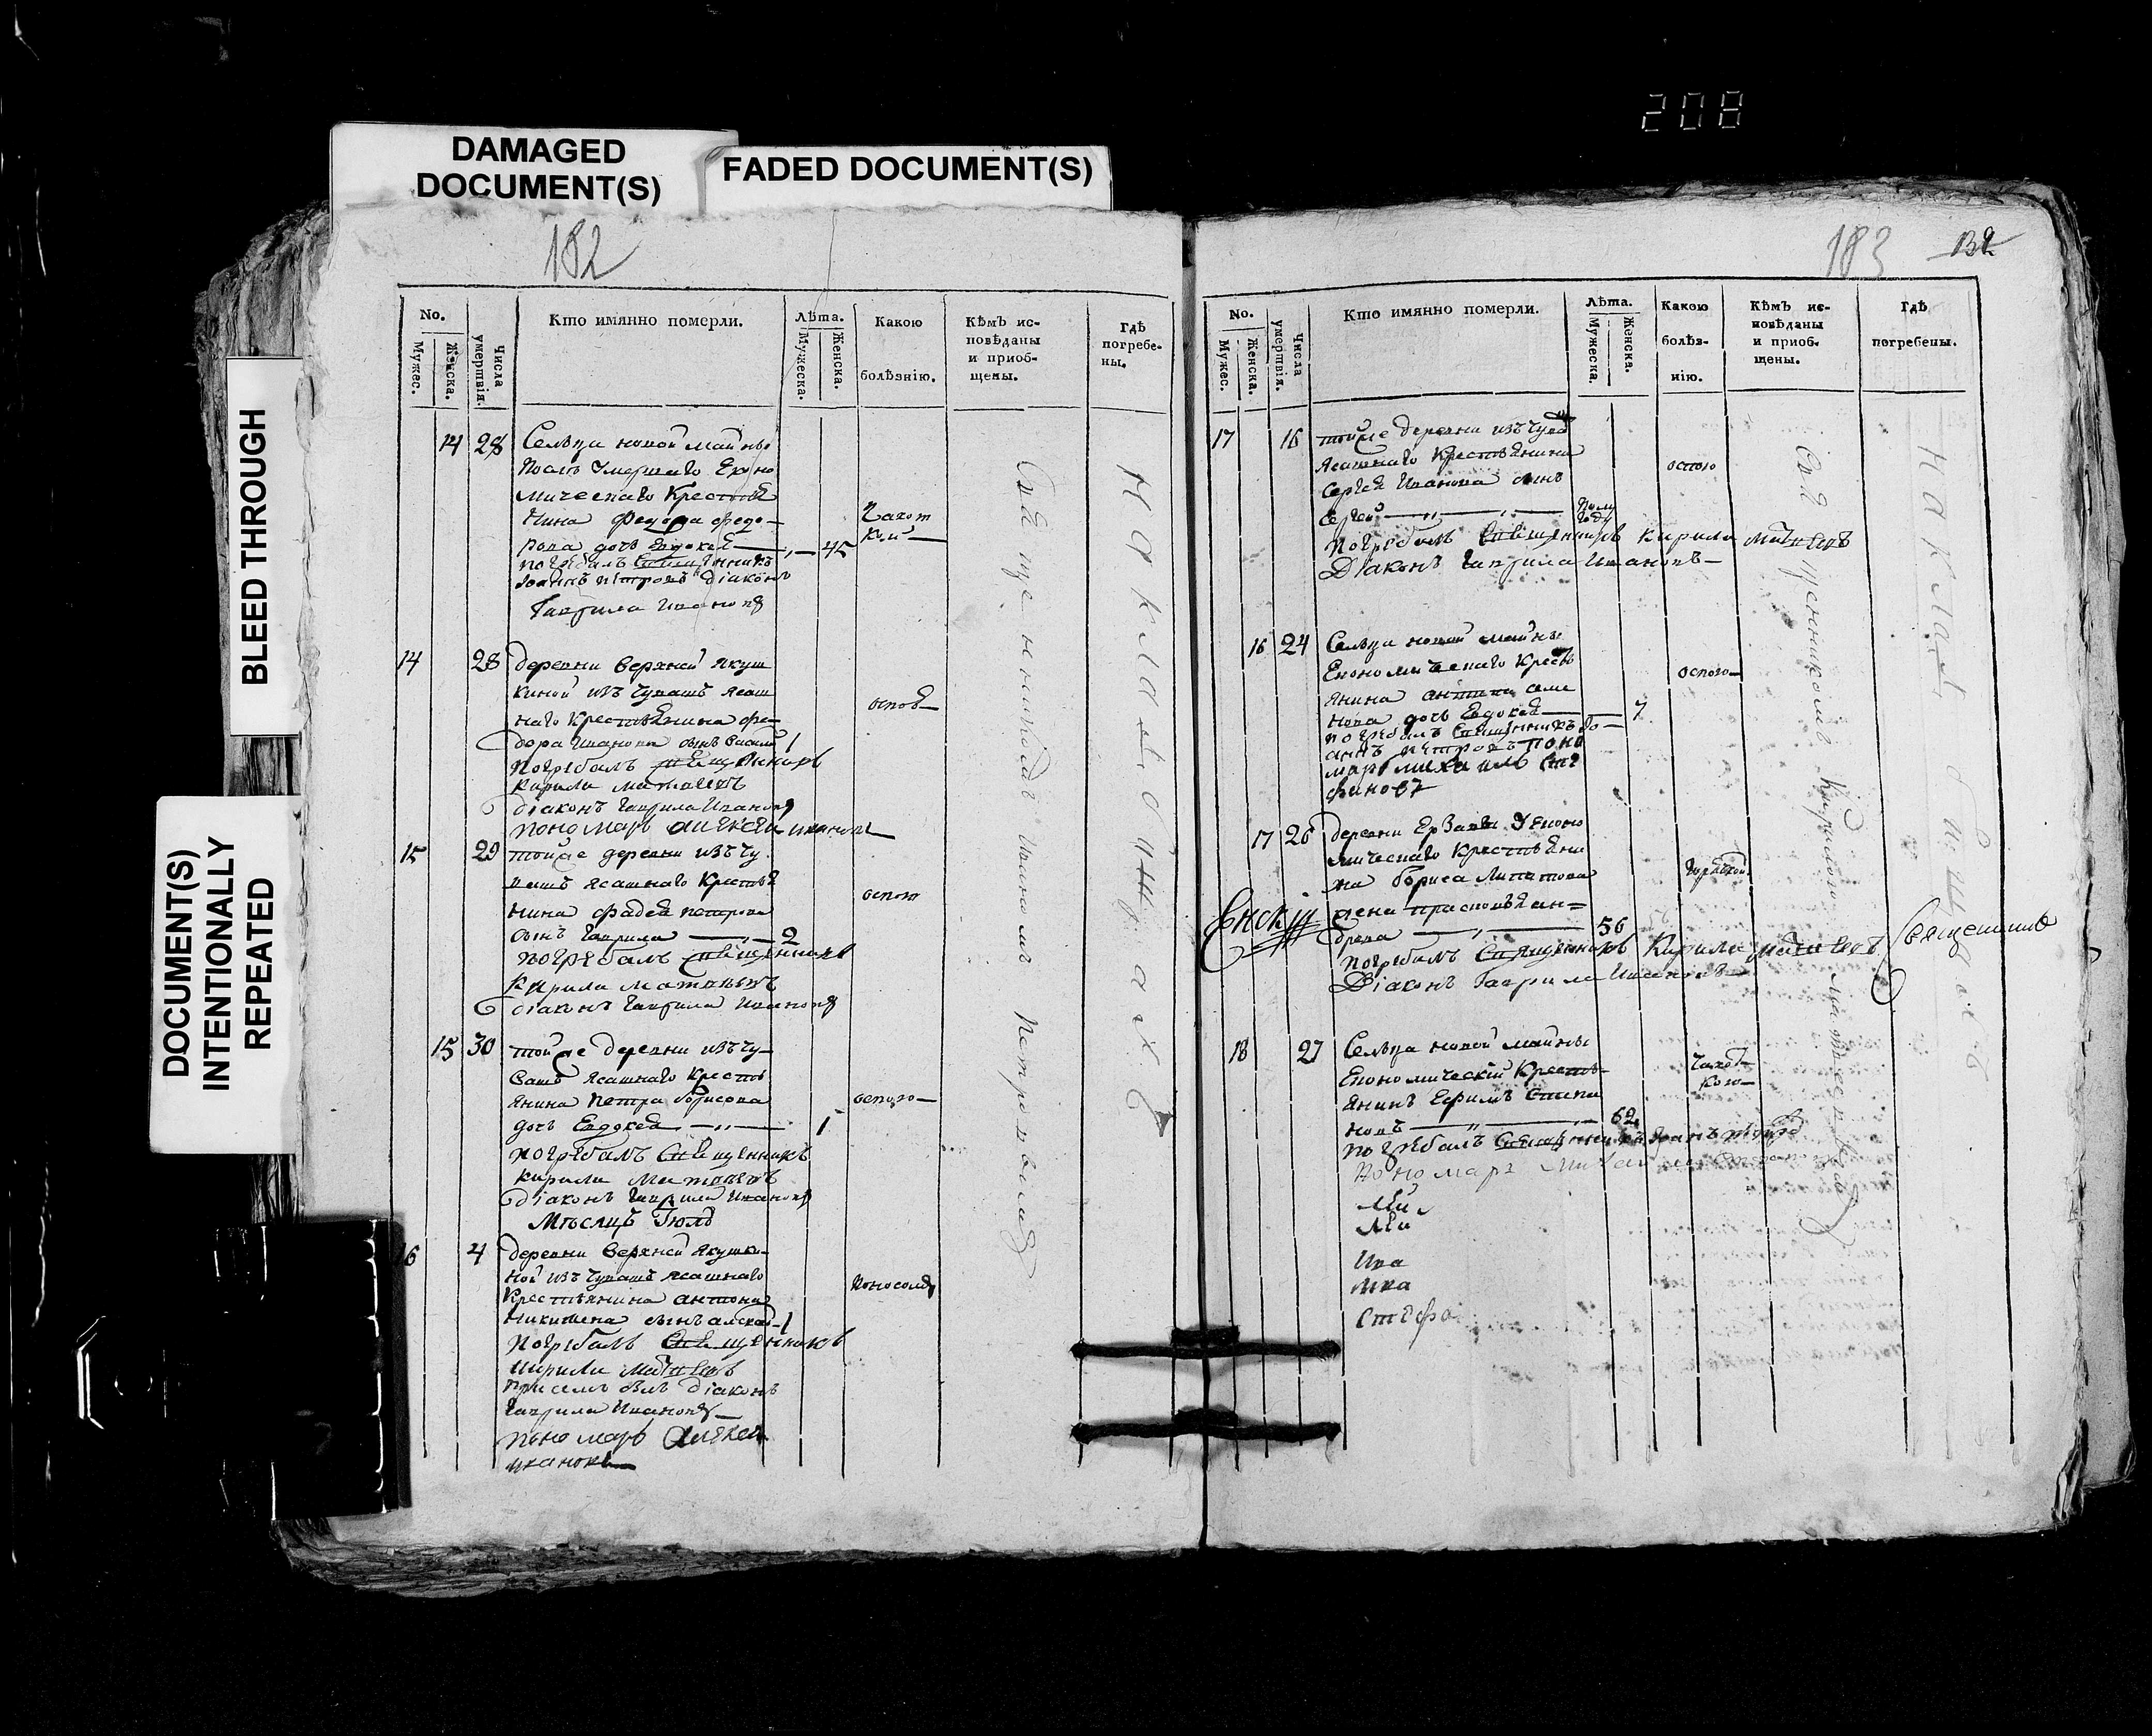 208
DAMAGED
DOCUMENT(S)
FADED DOCUMENT(S)
BLEED THROUGH
DOCUMENT(S)
INTENTIONALLY
REPEATED
182
No.
Мужес.
Женска.
Числа умертвія.
Кто имянно померли.
Лѣта.
Мужеска.
Женска.
Какою
болѣзнію.
Кѣмъ ис-
повѣданы
и приоб-
щены.
Гдѣ
погребе-
ны.
14 28 Сельца новой майны
Умершаго Еконо
мическаго Крестья
нина Федора Федо
рова дочь Евдокея 45
Чахот
кой
погребалъ священникъ
Іоаннъ Петровъ діаконъ
Гаврила Ивановъ
14 28 деревни верхней якуш
киной изъ чувашъ ясаш
наго крестьянина Фе
дора Иванова сынъ Василей 1
оспою
погребалъ священникъ
Кирила Матвеевъ
діаконъ Гаврила Ивановъ
пономарь Алексей Ивановъ
15 29 тойже деревни изъ чу
вашъ ясашнаго крестья
нина Фадея Петрова
сынъ Гаврила 2
оспою
погребалъ священникъ
Кирила Матвеевъ
діаконъ Гаврила Ивановъ
15 30 тойже деревни изъ чу
вашъ ясашнаго Кресть
янина Петра Борисова
дочь Евдокея 1
оспою
погребалъ священникъ
Кирила Матвеевъ
діаконъ Гаврила Ивановъ
Мѣсяцъ Іюль
16 4 деревни верхней якушки
ной изъ чувашъ ясашнаго
Крестьянина Антона
Никитина сынъ 1
поносомъ
погребалъ священникъ
Кирила Матвеевъ
при семъ былъ діаконъ
Гаврила Ивановъ
пономарь Алексей
Ивановъ
Священникомъ Иоанномъ Петровымъ
На кладбищахъ
183 132
No.
Мужес.
Женска.
Числа умертвія.
Кто имянно померли.
Лѣта.
Мужеска.
Женска.
Какою
болѣз-
нію.
Кѣмъ ис-
повѣданы
и приоб-
щены.
Гдѣ
погребены.
17 16 тойже деревни изъ чува
ясашнаго крестьянина
Сергея Иванова сынъ
Сергей полу
году
оспою
погребалъ священникъ Кирила Матвеевъ
Діаконъ Гаврила Ивановъ
16 24 Сельца новой майны
Економическаго Кресть
янина Антипа Семе
нова дочь Евдокея 7
оспою
погребалъ священникъ Іо
аннъ Петровъ поно
марь Михаилъ Сте
фановъ
17 26 деревни Економи
ческаго Крестьяни
на Бориса
жена Прасковья Ан
дреева 56
погребалъ священникъ Кирила Матвеевъ
Діаконъ Гаврила Ивановъ
18 27 Сельца новой майны
Економический Кресть
янинъ Ефимъ Степа
новъ 62
Чахот
кою
погребалъ священникъ Іоаннъ Петровъ
Пономарь Михаилъ
Ми
Ми
Ива
Ива
Стефа
Священникомъ Кириломъ Матвеевымъ
На кладбищахъ